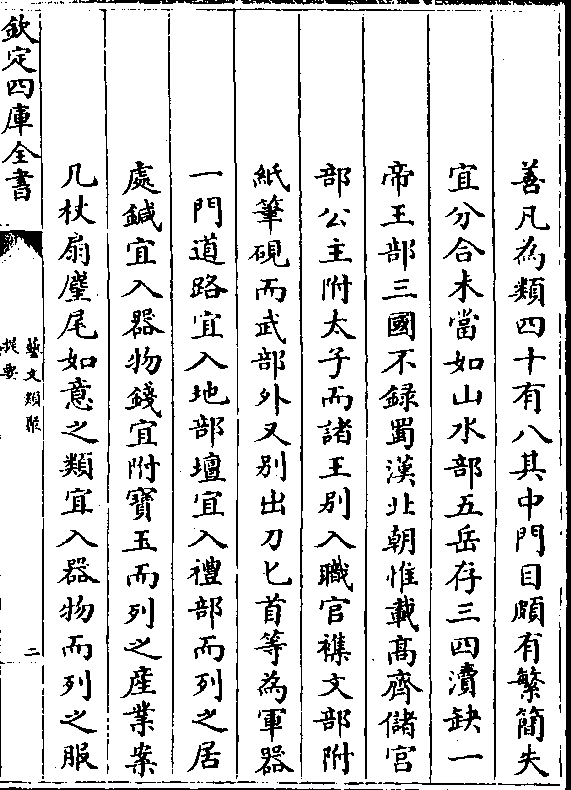 善凡為類四十有八其中門目頗有繁簡失
宜分合未當如山水部五岳存三四瀆缺一
帝王部三國不録蜀漢北朝惟載髙齊儲宫
部公主附太子而諸王别入職官襍文部附
紙筆硯而武部外又别出刀匕首等為軍器
一門道路宜入地部壇宜入禮部而列之居
處鍼宜入器物錢宜附寶玉而列之産業案
几杖扇麈尾如意之類宜入器物而列之服
欽定四庫全書
藝文類聚
提要
二